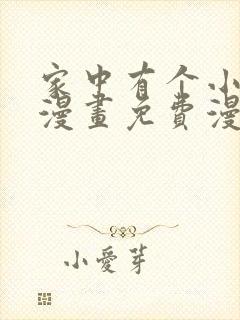 家中有个小
漫畫免費漫
小愛芽